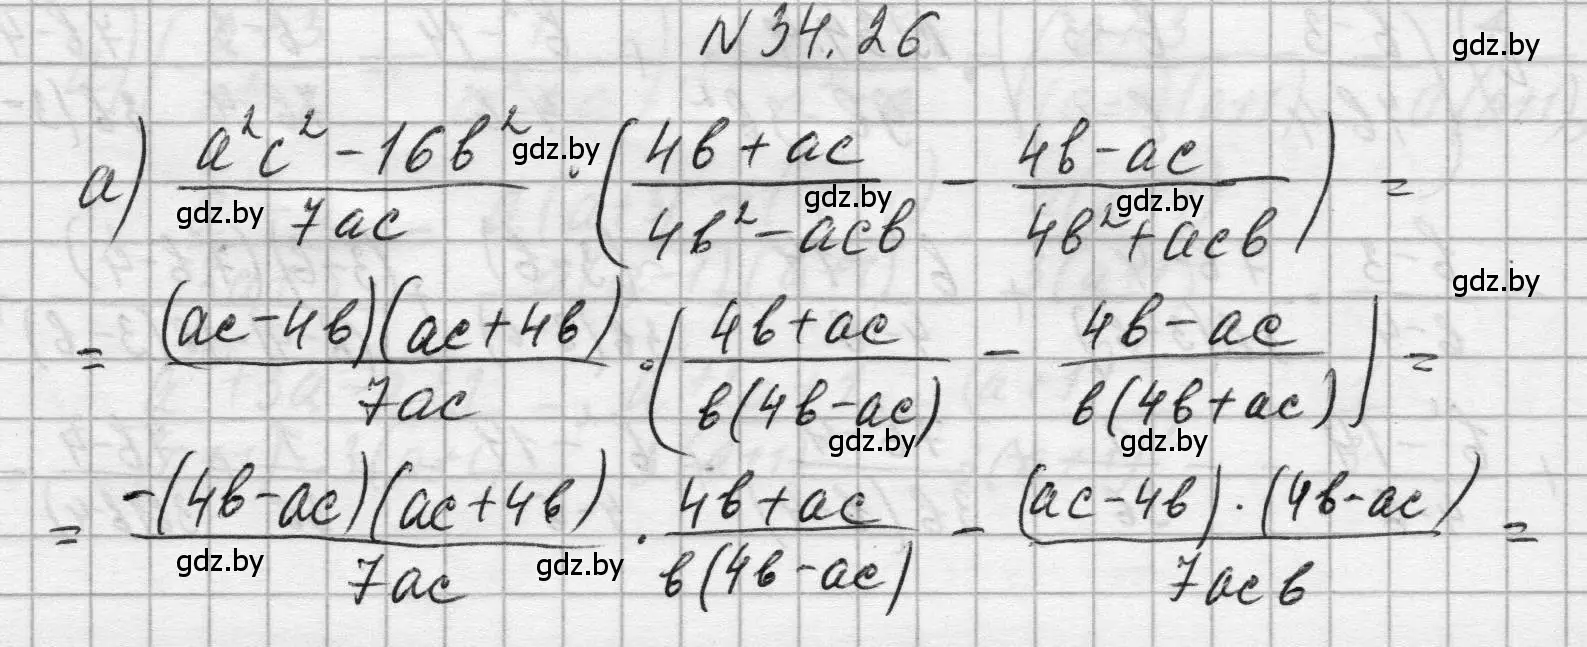 N34.26
а) (a²c² - 16b²)/(7ac) · ((4b + ac)/(4b² - acb) - (4b - ac)/(4b² + acb)) =
= ((ac - 4b)(ac + 4b))/(7ac) · ((4b + ac)/(b(4b - ac)) - (4b - ac)/(b(4b + ac))) =
= (-(4b - ac)(ac + 4b))/(7ac) · (4b + ac)/(b(4b - ac)) - ((ac - 4b) · (4b - ac))/(7acb) =
gdz.by
gdz.by
gdz.by
gdz.by
gdz.by
gdz.by
gdz.by
gdz.by
gdz.by
gdz.by